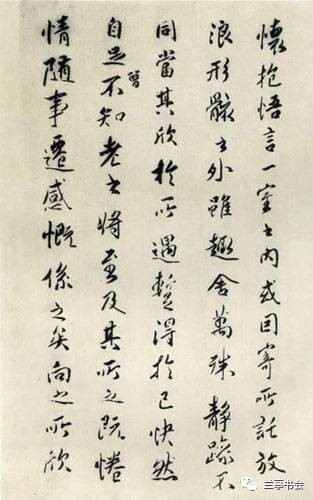 懷抱悟言一室之內或因寄所託放
浪形骸之外雖趣舍萬殊靜躁不
同當其欣於所遇暫得於己快然
曾
自足不知老之將至及其所之既惓
情隨事遷感慨係之矣向之所欣
兰亭书会